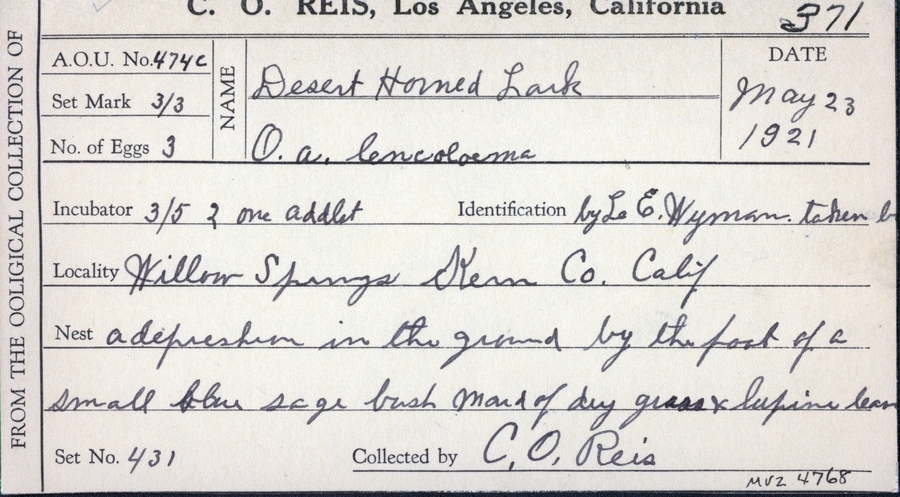 C. O. REIS, Los Angeles, California
371
FROM THE OOLIGICAL COLLECTION OF
A.O.U. No. 474c
Set Mark 3/3
No. of Eggs 3
NAME
Desert Horned Lark
O. a. lencoloema
DATE
May 23
1921
Incubator 3/5 2 one addlet
Identification by L. E. Wyman. taken b
Locality Willow Springs Kern Co. Calif
Nest a depreshion in the ground by the foot of a
small blue sage bush Maid of dry grass & lupine leav
Set No. 431
Collected by C. O. Reis
MVZ 4768